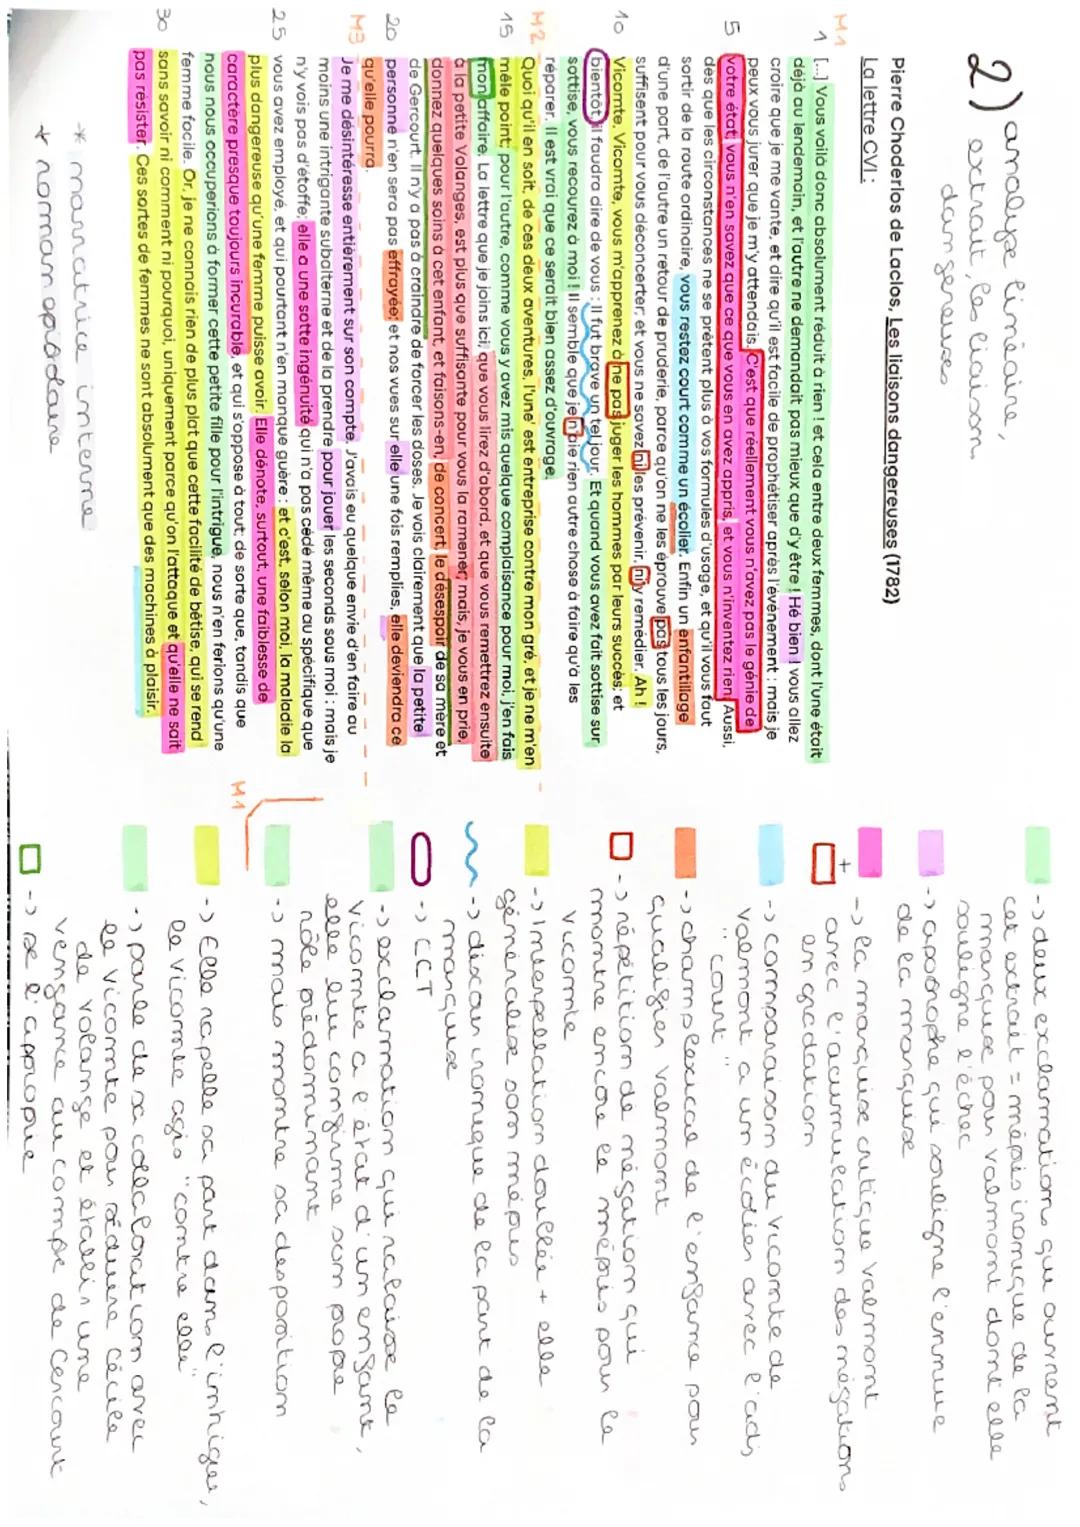 2) analyse linéaire,
extrait, les liaison
dangereuses
Pierre Choderlos de Laclos, Les liaisons dangereuses (1782)
La lettre CVI :
M1
1 [...] Vous voilà donc absolument réduit à rien ! et cela entre deux femmes, dont l'une était
déjà au lendemain, et l'autre ne demandait pas mieux que d'y être ! Hé bien ! vous allez
croire que je me vante, et dire qu'il est facile de prophétiser après l'événement : mais je
peux vous jurer que je m'y attendais. C'est que réellement vous n'avez pas le génie de
5 votre état; vous n'en savez que ce que vous en avez appris, et vous n'inventez rien. Aussi,
dès que les circonstances ne se prêtent plus à vos formules d'usage, et qu'il vous faut
sortir de la route ordinaire, vous restez court comme un écolier. Enfin un enfantillage
d'une part, de l'autre un retour de pruderie, parce qu'on ne les éprouve pas tous les jours,
suffisent pour vous déconcerter; et vous ne savez ni les prévenir, ni y remédier. Ah !
10 Vicomte, Vicomte, vous m'apprenez à ne pas juger les hommes par leurs succès; et
bientôt, il faudra dire de vous : Il fut brave un tel jour. Et quand vous avez fait sottise sur
sottise, vous recourez à moi ! Il semble que je n'aie rien autre chose à faire qu'à les
réparer. Il est vrai que ce serait bien assez d'ouvrage.
M2
Quoi qu'il en soit, de ces deux aventures, l'une est entreprise contre mon gré, et je ne m'en
15 mêle point; pour l'autre, comme vous y avez mis quelque complaisance pour moi, j'en fais
mon affaire. La lettre que je joins ici, que vous lirez d'abord, et que vous remettrez ensuite
à la petite Volanges, est plus que suffisante pour vous la ramener; mais, je vous en prie,
donnez quelques soins à cet enfant, et faisons-en, de concert, le désespoir de sa mère et
de Gercourt. Il n'y a pas à craindre de forcer les doses. Je vois clairement que la petite
20 personne n'en sera pas effrayée; et nos vues sur elle une fois remplies, elle deviendra ce
qu'elle pourra.
M3
Je me désintéresse entièrement sur son compte. J'avais eu quelque envie d'en faire au
moins une intrigante subalterne et de la prendre pour jouer les seconds sous moi : mais je
n'y vois pas d'étoffe; elle a une sotte ingénuité qui n'a pas cédé même au spécifique que
25 vous avez employé, et qui pourtant n'en manque guère : et c'est, selon moi, la maladie la
plus dangereuse qu'une femme puisse avoir. Elle dénote, surtout, une faiblesse de
caractère presque toujours incurable, et qui s'oppose à tout; de sorte que, tandis que
nous nous occuperions à former cette petite fille pour l'intrigue, nous n'en ferions qu'une
femme facile. Or, je ne connais rien de plus plat que cette facilité de bêtise, qui se rend
30 sans savoir ni comment ni pourquoi, uniquement parce qu'on l'attaque et qu'elle ne sait
pas résister. Ces sortes de femmes ne sont absolument que des machines à plaisir.
* narratrice interne
* roman épistolaire
-> deux exclamations qui ouvrent
cet extrait = mépris ironique de la
marquise pour valmont dont elle
souligne l'échec
-> apostrophe qui souligne l'ennuie
de la marquise
+
-> la marquise critique valmont
avec l'acumulation des négations
en gradation
-> comparaison du vicomte de
Valmont a un écolier avec l'adj
"court"
-> champ lexical de l'enfance pour
qualifier valmont
-> répétition de négation qui
montre encore le mépris pour le
vicomte
-> Interpellation doublée + elle
généralise son mépris
-> discour ironique de la part de la
marquise
-> CCT
-> exclamation qui rabaisse le
vicomte a l'état d'un enfant,
elle lui confirme son propre
rôle prédominant
-> mais montre sa desposition
M1
-> Elle rapelle sa part dans l'intrigue,
le vicomte agis "contre elle"
-> parle de sa collaboration avec
le vicomte pour séduire cécile
de volange et établis une
vengance au compte de Gercourt
-> se l'approprie